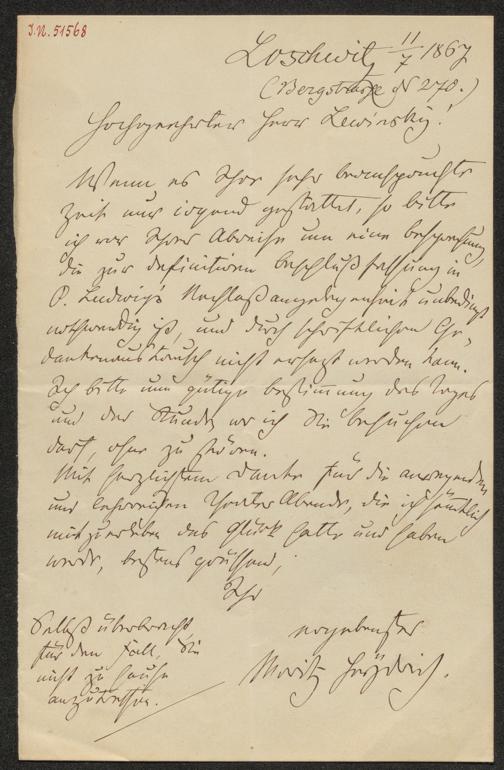 J.N. 51568
Loschwitz 11/7 1867
(Bergstraße N 270.)
Hochgeehrter Herr Lewinsky!
Wenn es Ihre sehr beanspruchte
Zeit nur irgend gestattet, so bitte
ich vor Ihrer Abreise um eine Besprechung,
die zur definitiven Beschlußfassung in
O. Ludwig's Nachlaßangelegenheit unbedingt
nothwendig ist, und durch schriftlichen Ge-
dankenaustausch nicht ersetzt werden kann.
Ich bitte um gütige Bestimmung des Tages
und der Stunde, wo ich Sie besuchen
darf, ohne zu stören.
Mit herzlichstem Danke für die anregenden
und lehrreichen Theater Abende, die ich sämtlich
mitzuerleben das Glück hatte und haben
werde, bestens grüßend,
Ihr
ergebenster
Moritz Heydrich.
Selbst überbracht
für den Fall, Sie
nicht zu Hause
anzutreffen.